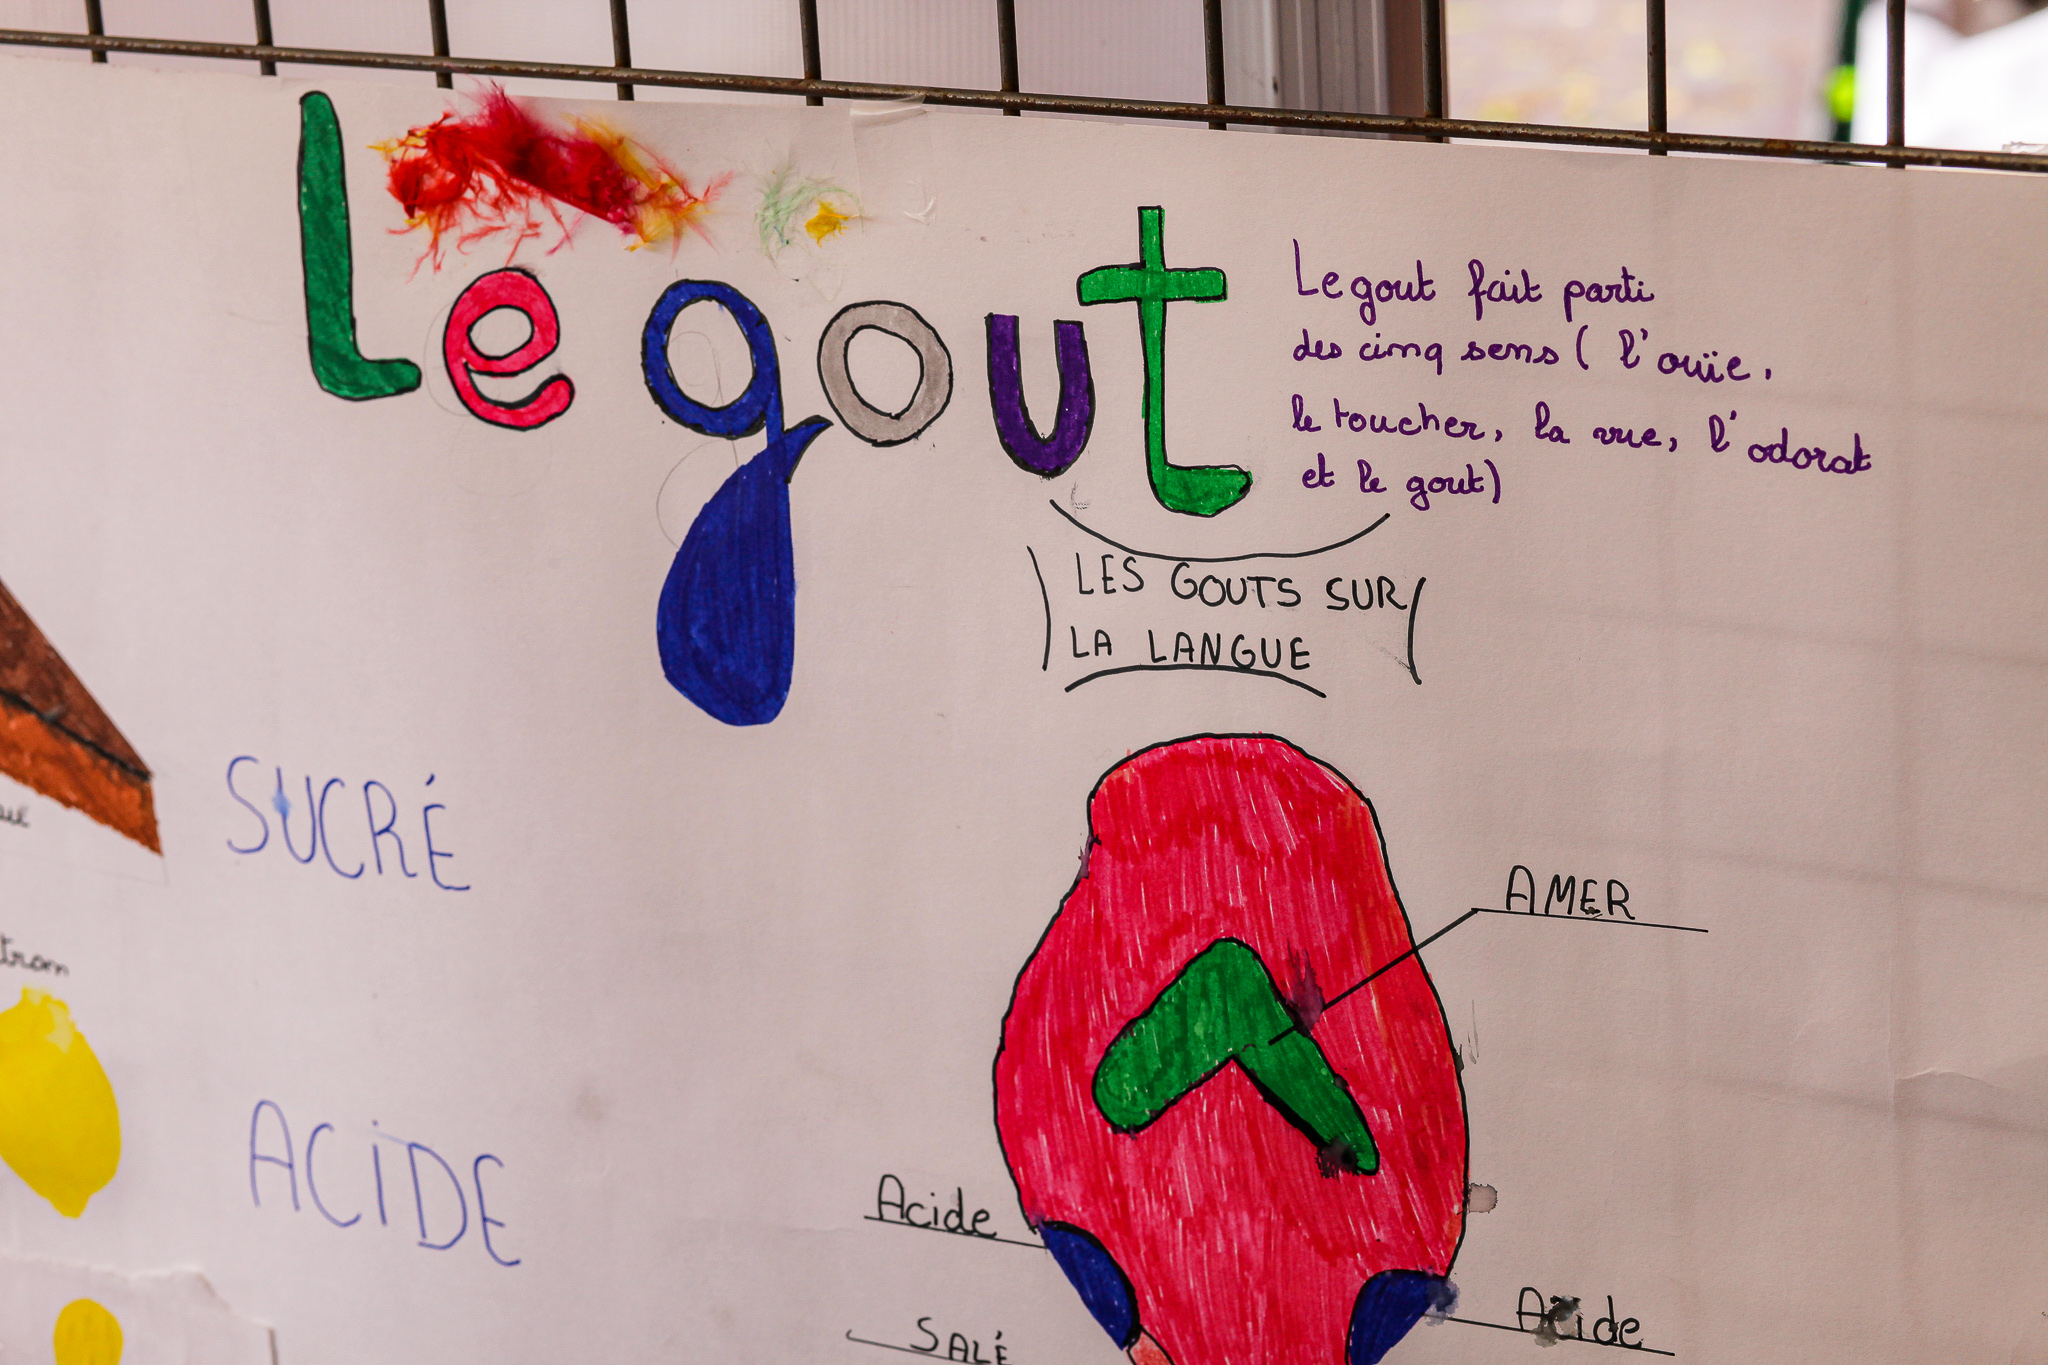 Le gout
Le gout fait parti
des cinq sens ( l'ouïe,
le toucher, la vue, l'odorat
et le gout)
LES GOUTS SUR
LA LANGUE
SUCRÉ
AMER
ACIDE
Acide
Acide
SALÉ